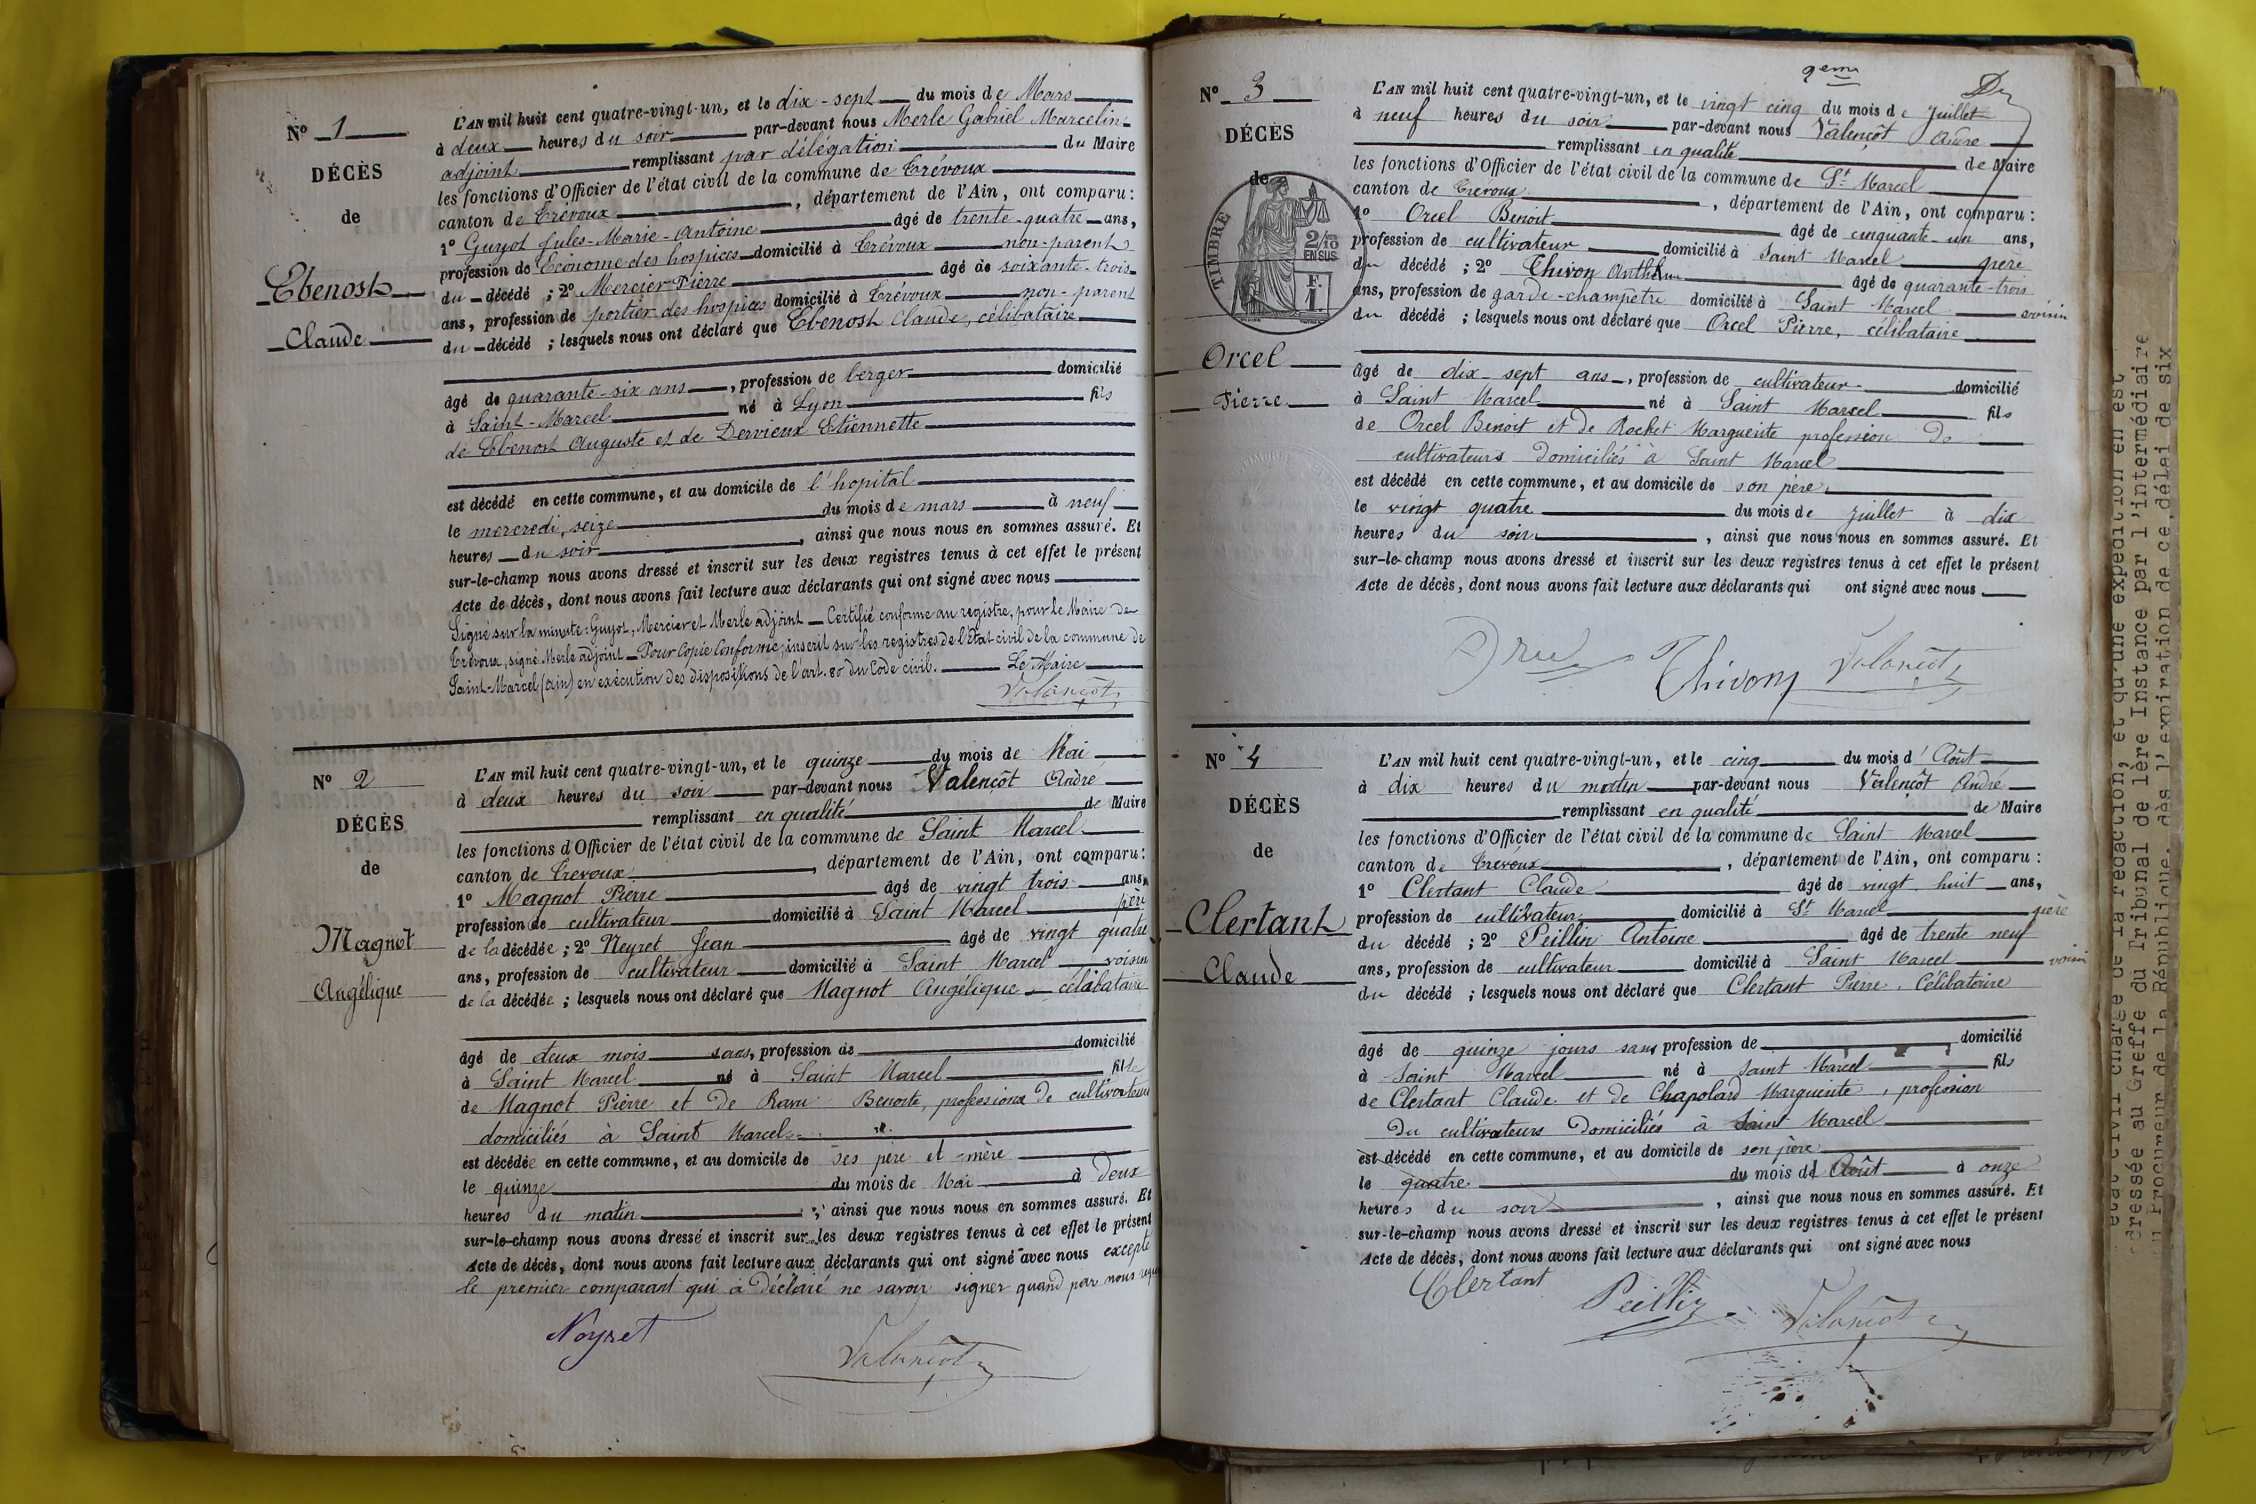 Nº 1
DÉCÈS
de
Ebenost
Claude
L'AN mil huit cent quatre-vingt-un, et le dix-sept du mois de Mars
à deux heures du soir par-devant nous Merle Gabriel Marcelin
adjoint remplissant par délégation du Maire
les fonctions d'Officier de l'état civil de la commune de Trévoux
canton de Trévoux, département de l'Ain, ont comparu:
1º Guyot Jules-Marie-Antoine âgé de trente-quatre ans,
profession de Econome des hospices domicilié à Trévoux non-parent
du décédé; 2º Mercier Pierre âgé de soixante-trois
ans, profession de portier des hospices domicilié à Trévoux non-parent
du décédé; lesquels nous ont déclaré que Ebenost Claude, célibataire
âgé de quarante-six ans, profession de berger domicilié
à Saint-Marcel né à Lyon fils
de Ebenost Auguste et de Dervieux Etiennette
est décédé en cette commune, et au domicile de l'hopital
le mercredi, seize du mois de mars à neuf
heures du soir, ainsi que nous nous en sommes assuré. Et
sur-le-champ nous avons dressé et inscrit sur les deux registres tenus à cet effet le présent
Acte de décès, dont nous avons fait lecture aux déclarants qui ont signé avec nous
Signé sur la minute: Guyot, Mercier et Merle adjoint — Certifié conforme au registre, pour le Maire de
Trévoux, signé Merle adjoint — Pour Copie Conforme, inscrit sur les registres de l'état civil de la commune de
Saint-Marcel (ain) en exécution des dispositions de l'art. 80 du Code civil. Le Maire
Valençôt
Nº 2
DÉCÈS
de
Magnot
Angélique
L'AN mil huit cent quatre-vingt-un, et le quinze du mois de Mai
à deux heures du soir par-devant nous Valençôt André
remplissant en qualité de Maire
les fonctions d'Officier de l'état civil de la commune de Saint Marcel
canton de Trevoux, département de l'Ain, ont comparu:
1º Magnot Pierre âgé de vingt trois ans,
profession de cultivateur domicilié à Saint Marcel père
de la décédée; 2º Neyret Jean âgé de vingt quatre
ans, profession de cultivateur domicilié à Saint Marcel voisin
de la décédée; lesquels nous ont déclaré que Magnot Angélique célabataire
âgé de deux mois sans, profession de domicilié
à Saint Marcel né à Saint Marcel fille
de Magnot Pierre et de Benoite, professions de cultivateurs
domiciliés à Saint Marcel
est décédée en cette commune, et au domicile de ses père et mère
le quinze du mois de Mai à deux
heures du matin, ainsi que nous nous en sommes assuré. Et
sur-le-champ nous avons dressé et inscrit sur les deux registres tenus à cet effet le présent
Acte de décès, dont nous avons fait lecture aux déclarants qui ont signé avec nous excepté
le premier comparant qui à déclaré ne savoir signer quand par nous requis
Neyret
Valençôt
9eme
Nº 3
DÉCÈS
de
TIMBRE
2/10
EN SUS
F.
1.
Orcel
Pierre
L'AN mil huit cent quatre-vingt-un, et le vingt cinq du mois de Juillet
à neuf heures du soir par-devant nous Valençôt André
remplissant en qualité de Maire
les fonctions d'Officier de l'état civil de la commune de St Marcel
canton de Trévoux, département de l'Ain, ont comparu:
1º Orcel Benoit âgé de cinquante-un ans,
profession de cultivateur domicilié à Saint Marcel père
du décédé; 2º Thivon Anthelme âgé de quarante-trois
ans, profession de garde-champêtre domicilié à Saint Marcel voisin
du décédé; lesquels nous ont déclaré que Orcel Pierre, célibataire
âgé de dix-sept ans, profession de cultivateur domicilié
à Saint Marcel né à Saint Marcel fils
de Orcel Benoit et de Rochet Marguerite profession de
cultivateurs domiciliés à Saint Marcel
est décédé en cette commune, et au domicile de son père
le vingt quatre du mois de juillet à dix
heures du soir, ainsi que nous nous en sommes assuré. Et
sur-le-champ nous avons dressé et inscrit sur les deux registres tenus à cet effet le présent
Acte de décès, dont nous avons fait lecture aux déclarants qui ont signé avec nous
Thivon Valençôt
Nº 4
DÉCÈS
de
Clertant
Claude
L'AN mil huit cent quatre-vingt-un, et le cinq du mois d'Août
à dix heures du matin par-devant nous Valençôt André
remplissant en qualité de Maire
les fonctions d'Officier de l'état civil de la commune de Saint Marcel
canton de Trévoux, département de l'Ain, ont comparu:
1º Clertant Claude âgé de vingt huit ans,
profession de cultivateur domicilié à St Marcel père
du décédé; 2º Peillin Antoine âgé de trente neuf
ans, profession de cultivateur domicilié à Saint Marcel voisin
du décédé; lesquels nous ont déclaré que Clertant Pierre, Célibataire
âgé de quinze jours sans profession de domicilié
à Saint Marcel né à Saint Marcel fils
de Clertant Claude et de Chapolard Marguerite, profession
du cultivateurs domiciliés à Saint Marcel
est décédé en cette commune, et au domicile de son père
le quatre du mois d'Août à onze
heures du soir, ainsi que nous nous en sommes assuré. Et
sur-le-champ nous avons dressé et inscrit sur les deux registres tenus à cet effet le présent
Acte de décès, dont nous avons fait lecture aux déclarants qui ont signé avec nous
Clertant
Peillin Valençôt
état civil chargé de la rédaction, et qu'une expédition en est
adressée au Greffe du Tribunal de 1ère Instance par l'intermédiaire
du Procureur de la République, dès l'expiration de ce délai de six